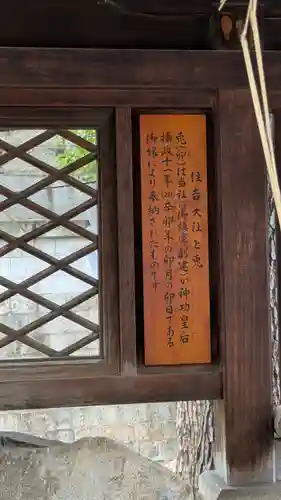 住吉大社と兎
兎(卯)は当社の御鎮座が神功皇后
摂政十一年(211)辛卯年の卯月の卯日である
御縁により奉納されたものです